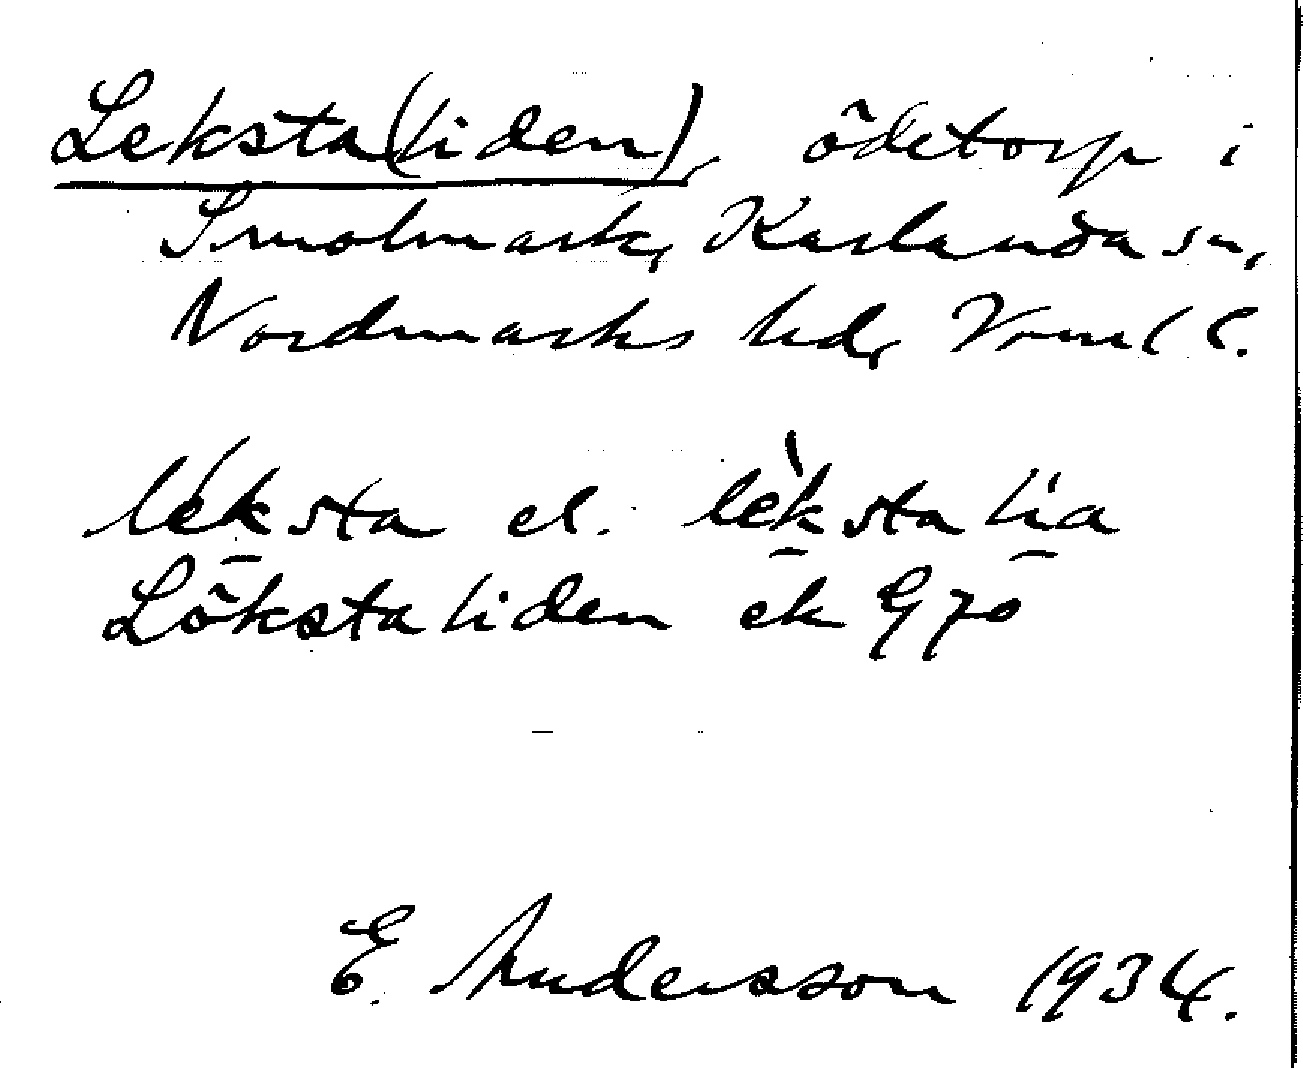 Leksta(liden), ödetorp i
Smolmark, Karlanda sn,
Nordmarks hd, Vrml l.
léksta el. lèksta lia
Lökstaliden ek G70
E. Andersson 1934.